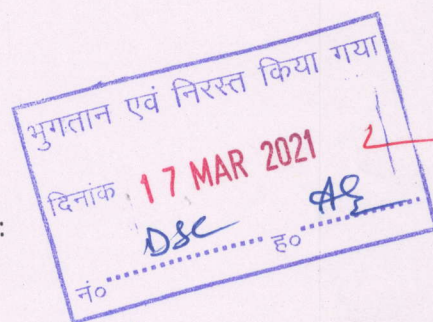 भुगतान एवं निरस्त किया गया
दिनांक 17 MAR 2021
: DSC
नं०.................... ह०....................